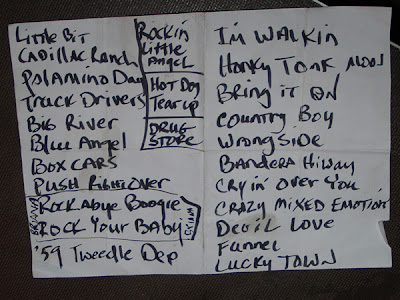 Little Bit
Cadillac Ranch
Palamino Day
Truck Drivers
Big River
Blue Angel
Box CARS
Push Right Over
Rockabye Boogie
Rock Your Baby
'59 Tweedle Dep
Rockin
Little
Angel
Hot Dog
Tear up
DRUG
STORE
I'm Walkin
Honky Tonk
Bring it ON
Country Boy
Wrong Side
Bandera Hiway
Cryin' Over You
CRAZY MIXED EMOTION
Devil Love
Funnel
Lucky TOWN